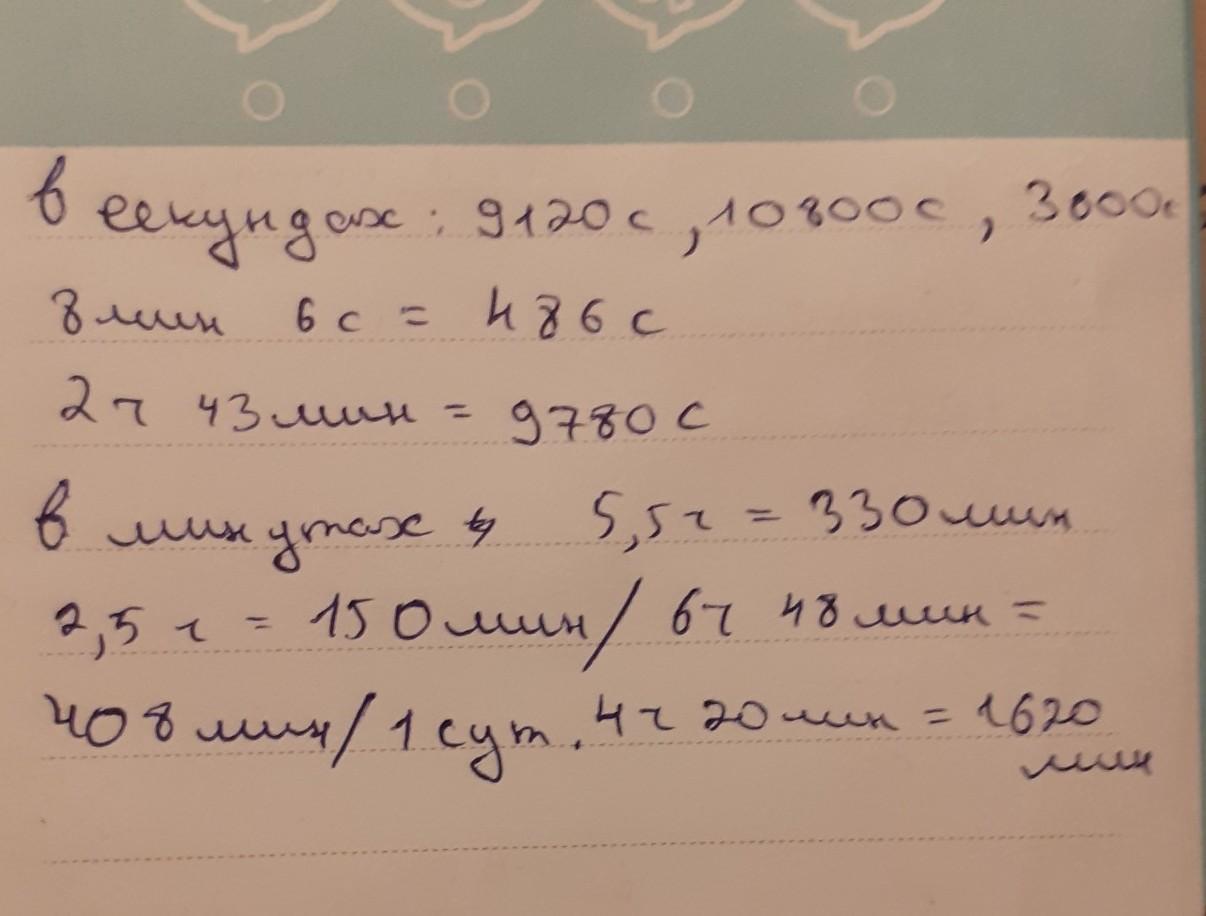 в секундах: 9120с, 10800с, 3600с
8мин 6с = 486с
2ч 43мин = 9780с
в минутах 5,5ч = 330мин
2,5ч = 150мин/ 6ч 48мин =
408мин/ 1сут. 4ч 20мин = 1620
мин